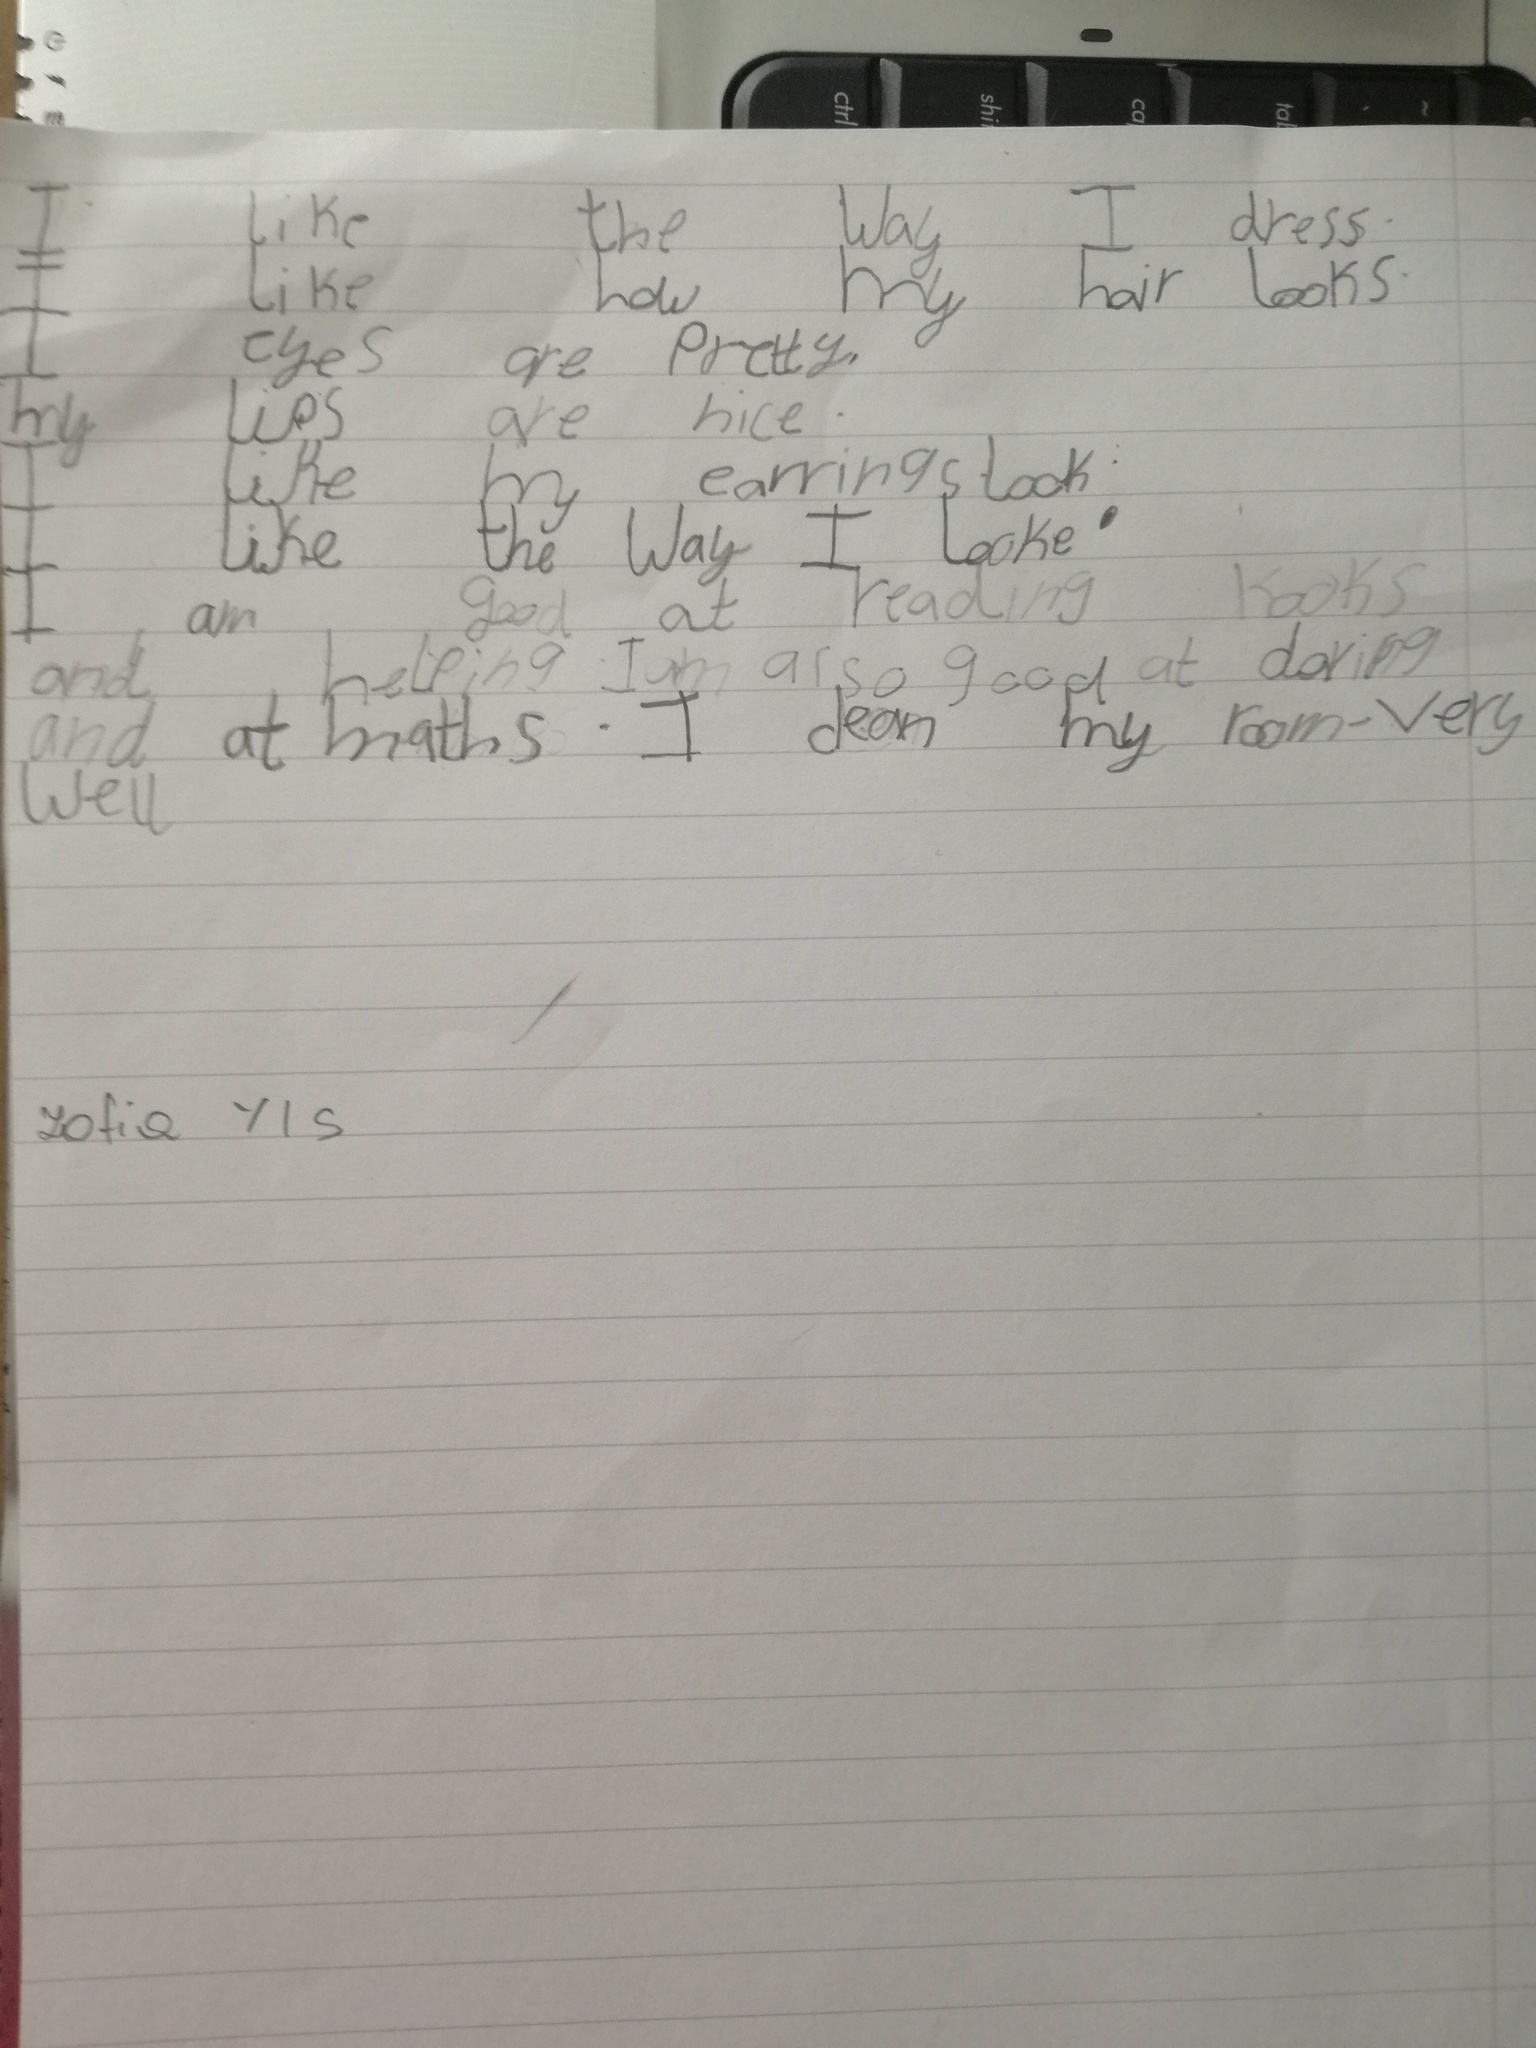 ctrl
shi
ca
tal
~
I like the Way I dress.
I like how my hair looks.
I eyes are Pretty.
my lips are nice.
I like my earrings look.
I like the Way I looke.
I am good at reading kooks
and helping. I am also good at
and at maths. I clean my room-very
Well
zofia Y1S